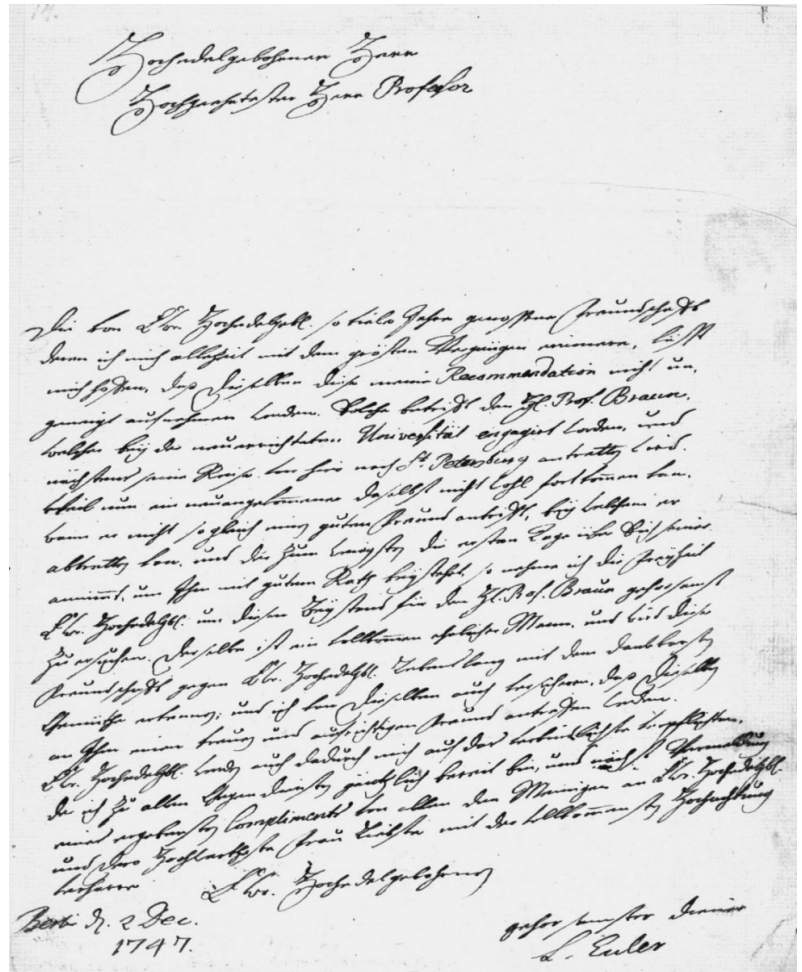 Hochedelgebohrner Herr
Hochgeehrtester Herr Professor
Die von Ewr. Hochedelgebl. so viele Jahre genossene Freundschafft
deren ich mich allezeit mit dem grösten Vergnügen erinnere, lässt
mich hoffen, dass Dieselben diese meine Recommendation nicht un-
geneigt aufnehmen werden. Solche betrifft den H. Prof. Braun,
welcher bey der neuerrichteten Universität engagirt worden, und
nächstens seine Reise von hier nach St. Petersburg antretten wird.
Weil nun ein neuangekommener daselbst nicht wohl fortkommen kan,
wann er nicht sogleich einen guten Freund antrifft, bey welchem er
abtretten kan, und der zum wenigsten die ersten Tage über sich seiner
annimmt, um Ihm mit gutem Rath beyzustehen, so nehme ich die Freyheit
Ewr. Hochedelgbl. um diesen Beystand für den H. Prof. Braun gehorsamst
zu ersuchen. Derselbe ist ein vollkommen ehrlicher Mann, und wird diese
Freundschafft gegen Ewr. Hochedelgbl. Lebenslang mit dem dankbarsten
Gemüthe erkennen; und ich kan Dieselben auch versichern, dass Dieselben
an Ihm einen treuen und aufrichtigen Freund antreffen werden.
Ewr. Hochedelgbl. werden auch dadurch mich auf das verbindlichste verpflichten,
da ich zu allen Gegendiensten gäntzlich bereit bin, und nächst Vermeldung
eines ergebensten Compliments von allen den Meinigen an Ewr. Hochedelgbl.
und Dero Hochwertheste Frau Liebste mit der vollkommensten Hochachtung
verharre
Ewr. Hochedelgebohrnen
Berlin d. 2 Dec.
1747.
gehorsamster Diener
L. Euler